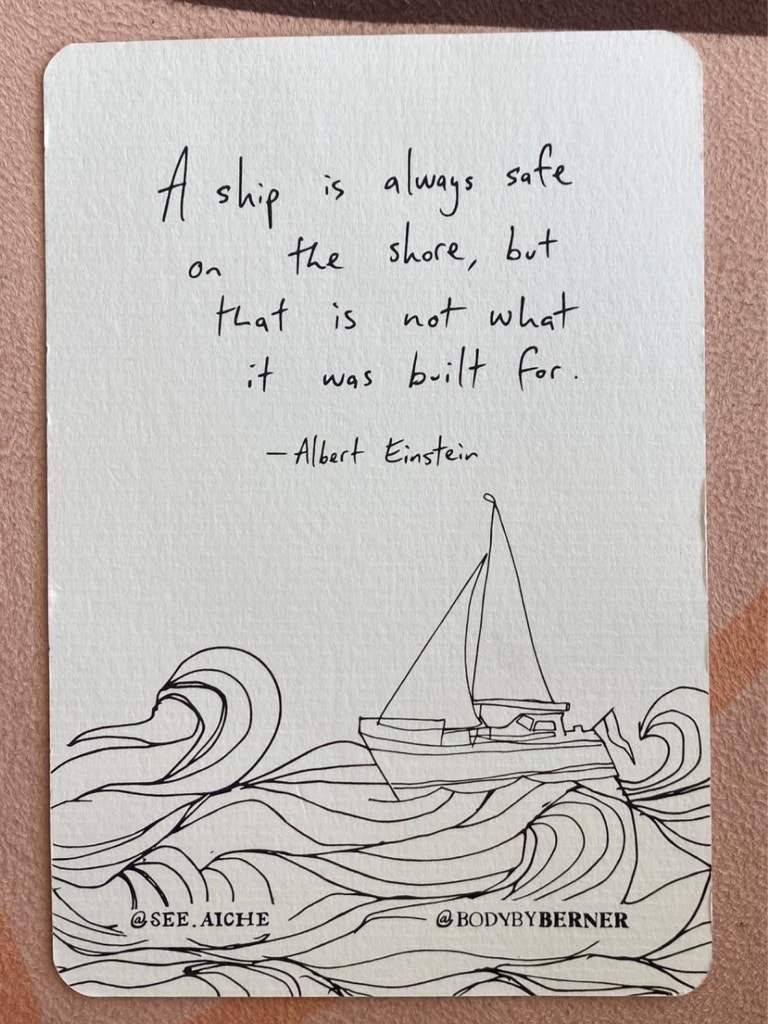 A ship is always safe
on the shore, but
that is not what
it was built for.
– Albert Einstein
@SEE.AICHE
@BODYBYBERNER